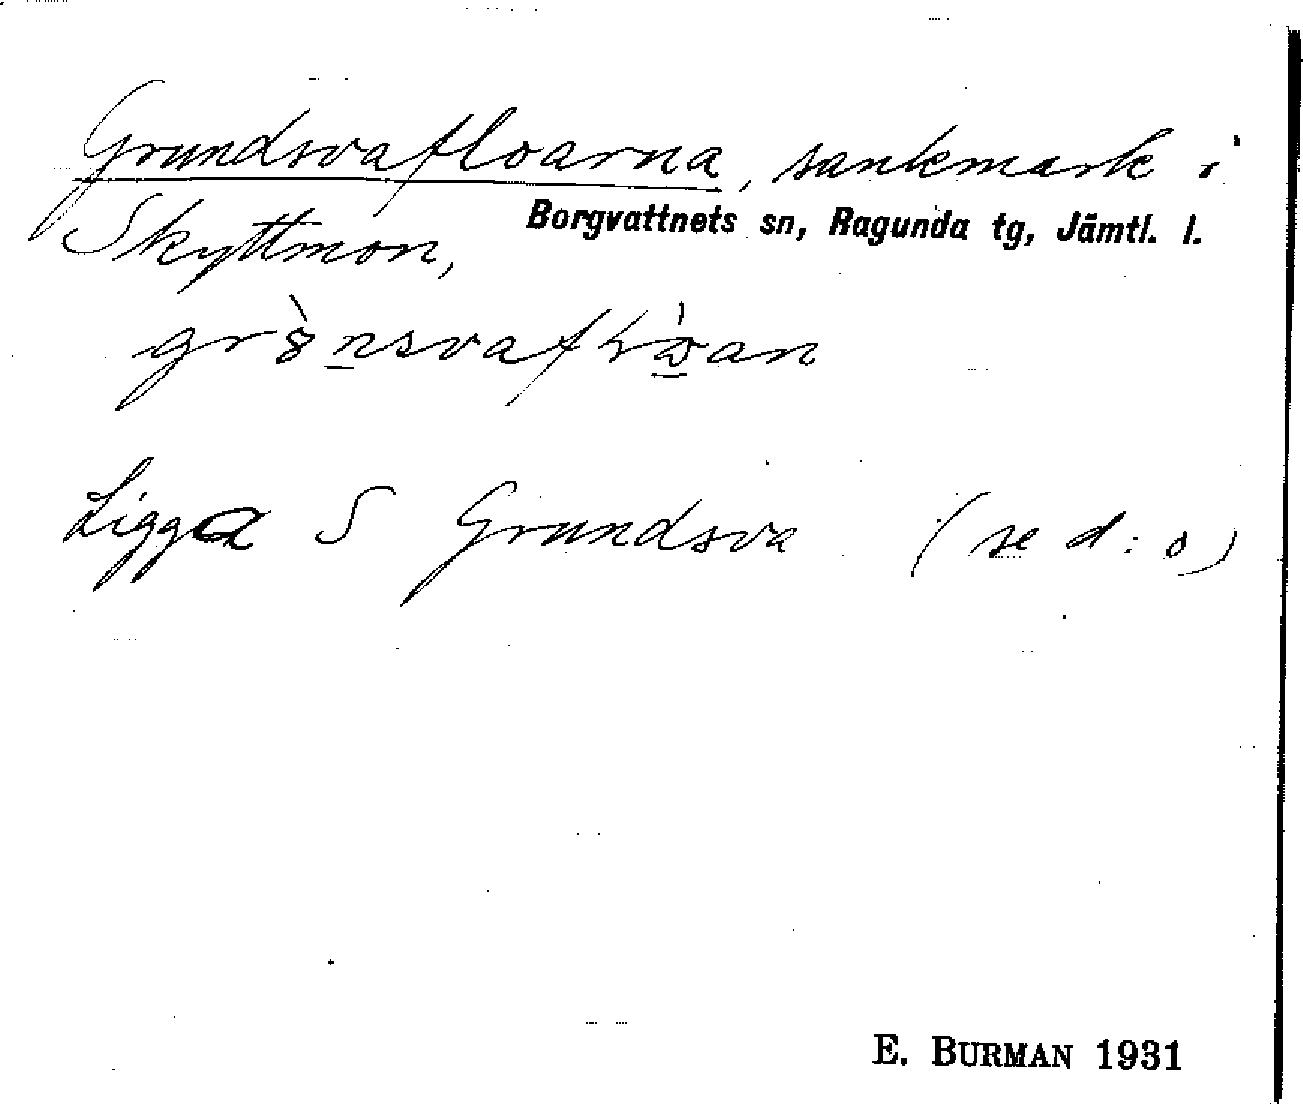 Grundsvafloarna, sankmark i
Skyttmon, Borgvattnets sn, Ragunda tg, Jämtl. l.
Ligga S Grundsva (se d:o)
E. BURMAN 1931